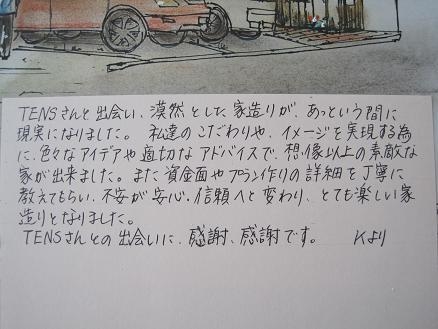 TENSさんと出会い、漠然とした家造りが、あっという間に
現実になりました。私達のこだわりや、イメージを実現する為
に、色々なアイデアや適切なアドバイスで、想像以上の素敵な
家が出来ました。また資金面やプラン作りの詳細を丁寧に
教えてもらい、不安が安心・信頼へと変わり、とても楽しい家
造りとなりました。
TENSさんとの出会いに、感謝、感謝です。 Kより